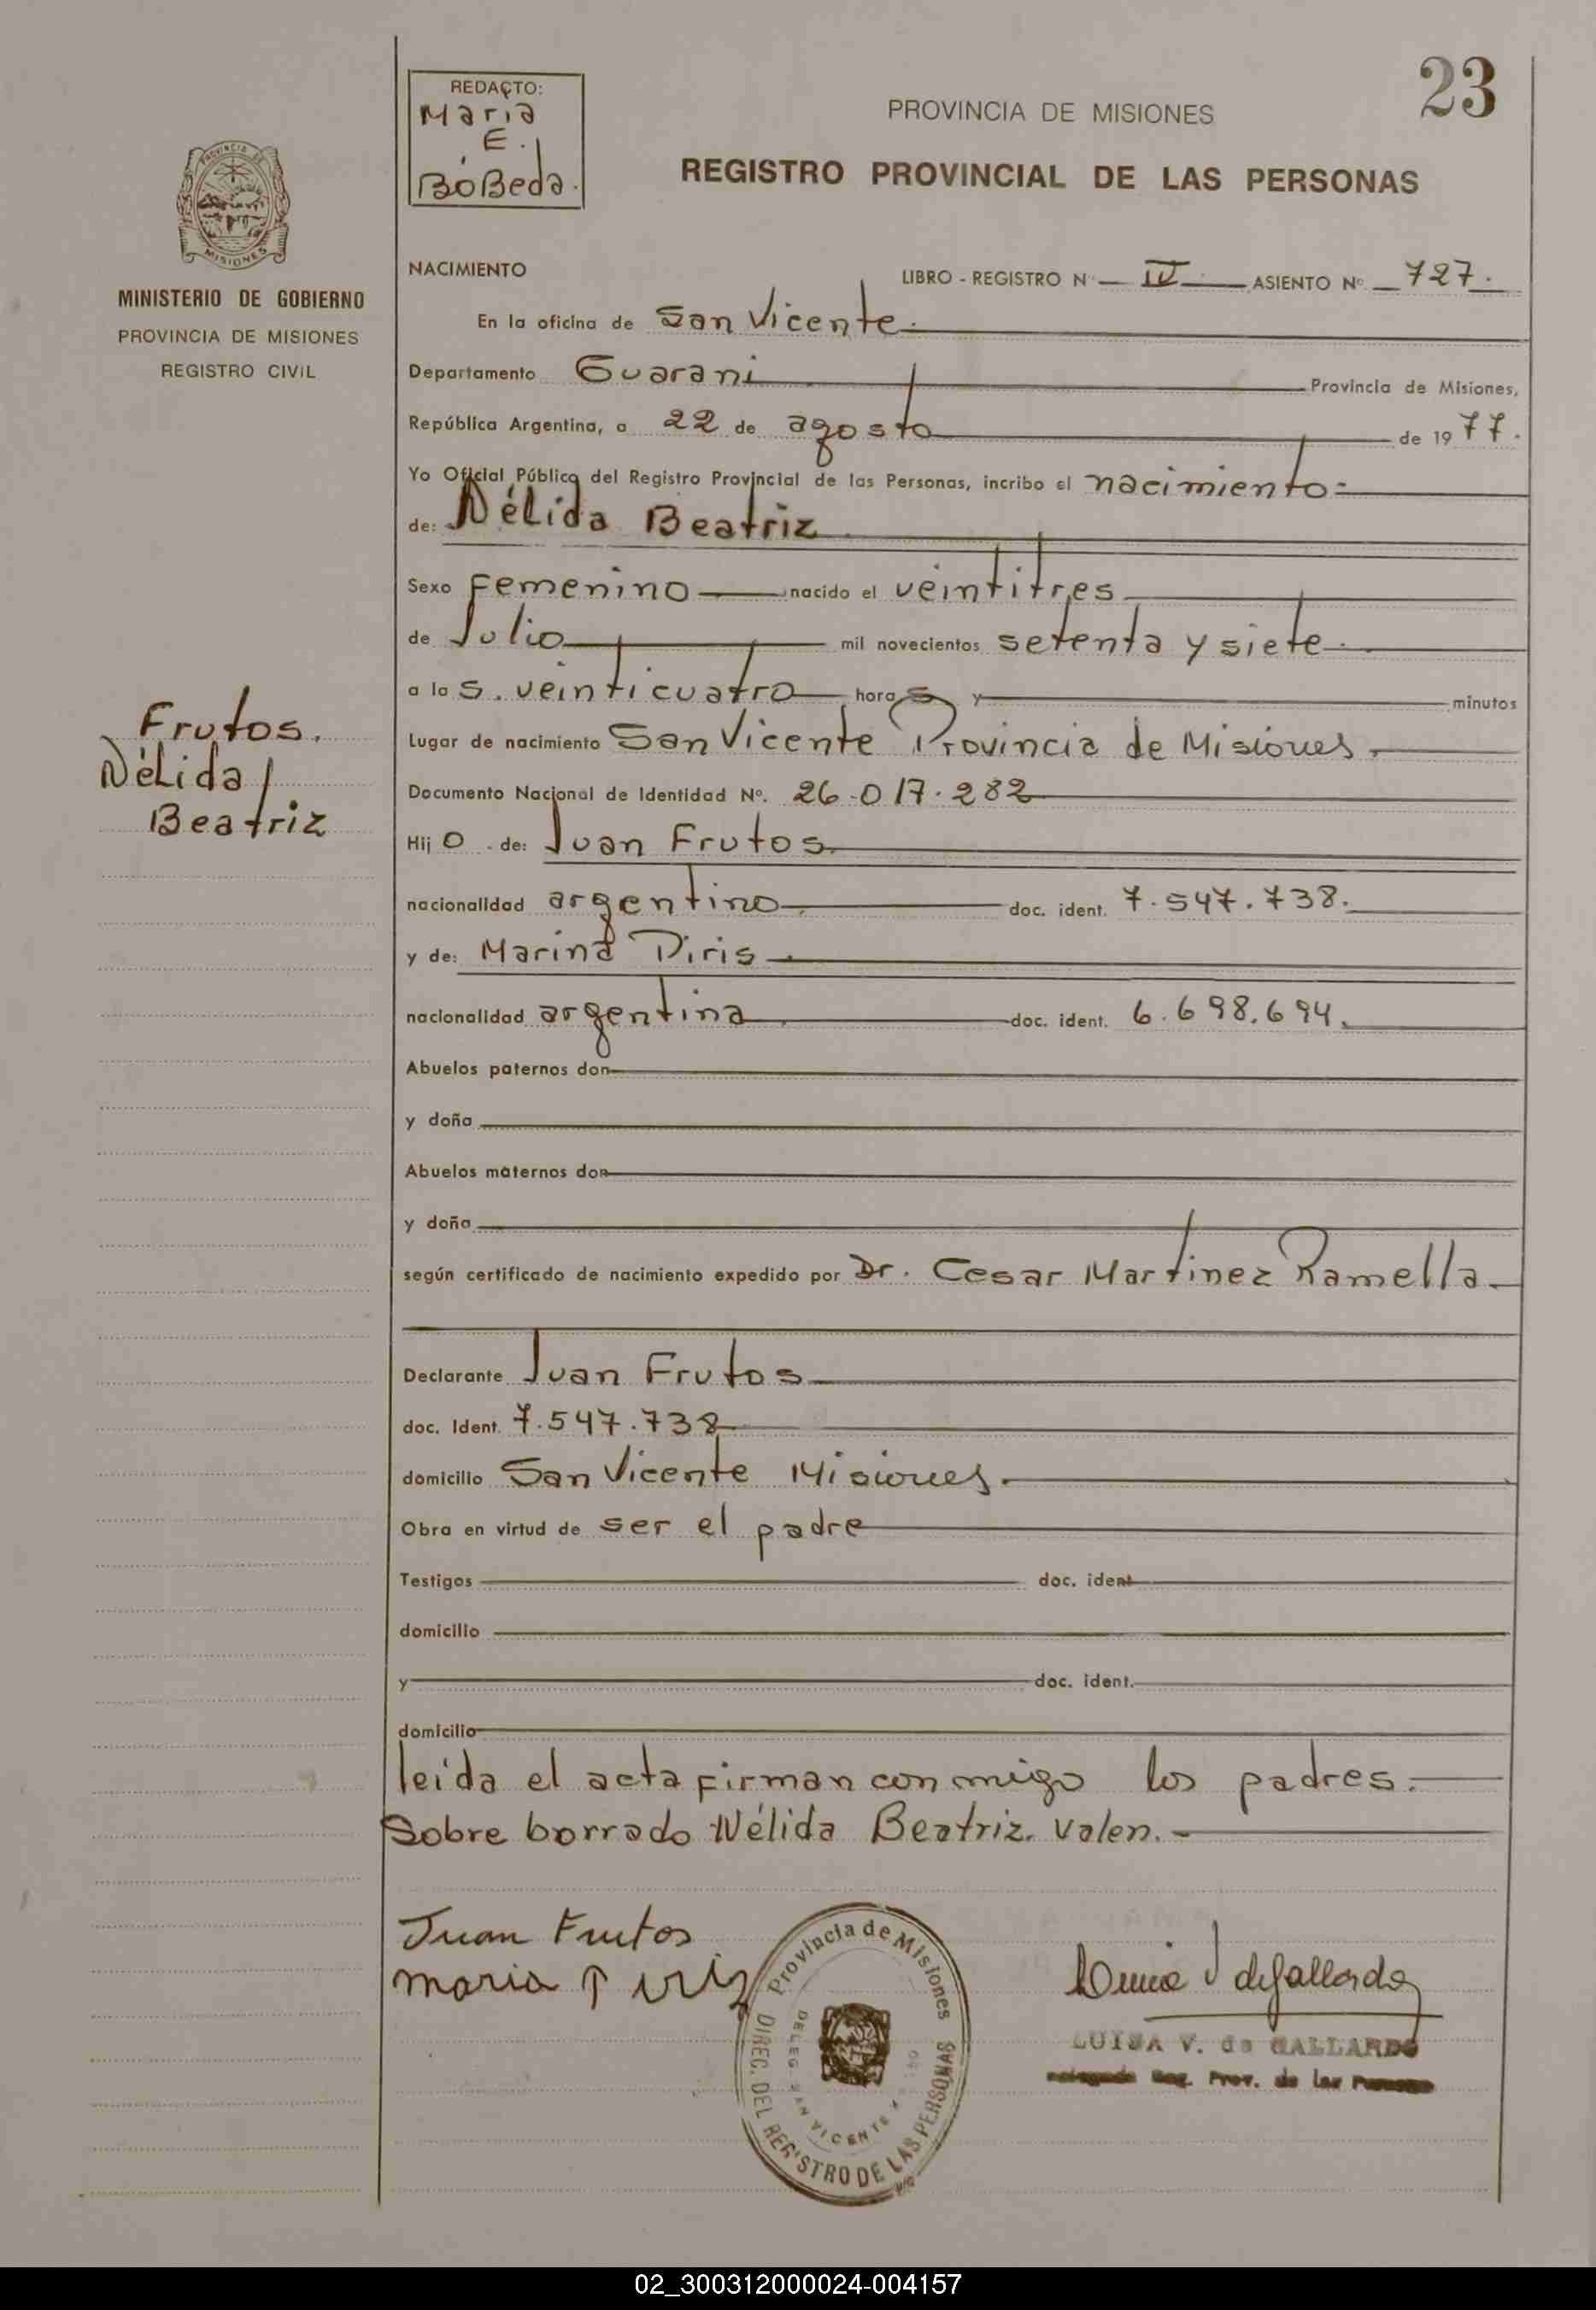 23
REDACTO:
Maria
E.
BoBeda.
PROVINCIA DE MISIONES
REGISTRO PROVINCIAL DE LAS PERSONAS
PROVINCIA DE
MISIONES
MINISTERIO DE GOBIERNO
PROVINCIA DE MISIONES
REGISTRO CIVIL
NACIMIENTO
LIBRO - REGISTRO Nº IV ASIENTO Nº 727.
En la oficina de San Vicente.
Departamento Guarani Provincia de Misiones,
República Argentina, a 22 de agosto de 1977.
Yo Oficial Público del Registro Provincial de las Personas, incribo el nacimiento:
de: Nélida Beatriz
Sexo Femenino nacido el veintitres
de Julio mil novecientos setenta y siete.
a las. veinticuatro horas y minutos
Frutos.
Nélida
Beatriz
Lugar de nacimiento San Vicente Provincia de Misiones.
Documento Nacional de Identidad Nº. 26.017.282
Hijo de: Juan Frutos.
nacionalidad argentino. doc. ident. 7.547.738.
y de: Marina Piris.
nacionalidad argentina. doc. ident. 6.698.694.
Abuelos paternos don
y doña
Abuelos maternos don
y doña
según certificado de nacimiento expedido por Dr. Cesar Martinez Ramella
Declarante Juan Frutos
doc. Ident. 7.547.738
domicilio San Vicente Misiones.
Obra en virtud de ser el padre
Testigos doc. ident
domicilio
y doc. ident.
domicilio
leida el acta firman con migo los padres.
Sobre borrado Nélida Beatriz. Valen.-
Juan Frutos
maria Piriz
Provincia de Misiones
DIREC. DEL REGISTRO DE LAS PERSONAS
DELEG. SAN VICENTE
de Gallardo
LUISA V. de GALLARDO
Delegada Reg. Prov. de las Personas
02_300312000024-004157